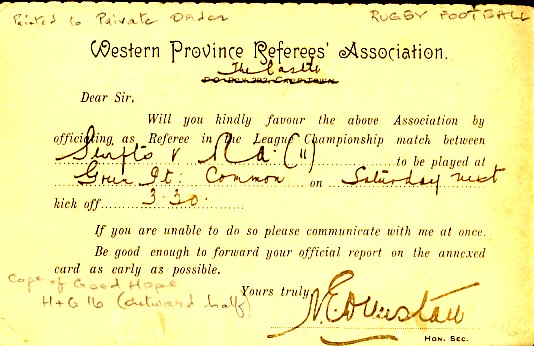 Printed to Private Order
RUGBY FOOTBALL
Western Province Referees' Association.
The Castle
P.O. BOX 393, CAPETOWN
Dear Sir,
Will you kindly favour the above Association by
officiating as Referee in the League Championship match between
v R.A. (II) to be played at
Green Pt: Common on Saturday next
kick off 3.30.
If you are unable to do so please communicate with me at once.
Be good enough to forward your official report on the annexed
card as early as possible.
Cape of Good Hope
H+G 16 (outward half)
Yours truly,
HON. SEC.